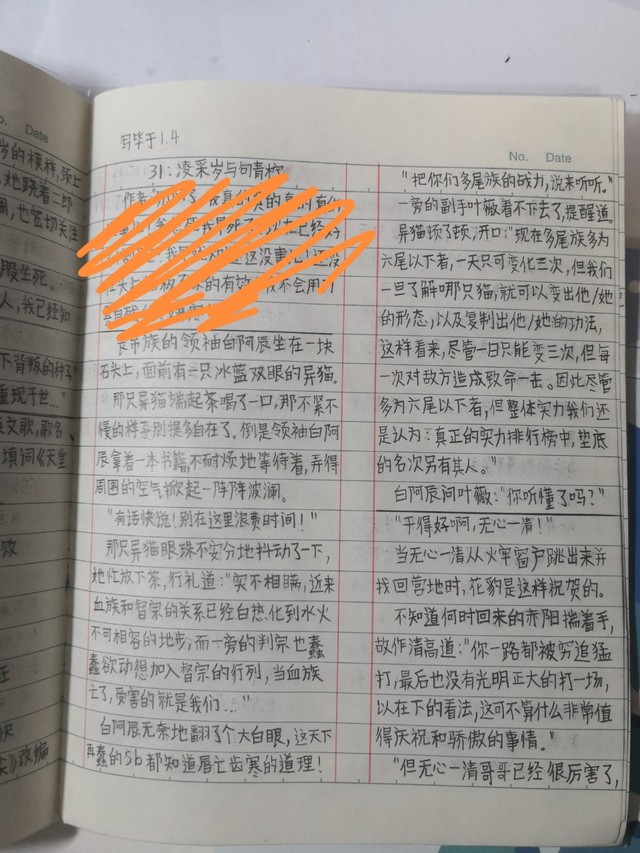 o. Date
岁的模样,颈上
她跷着二郎
周,也密切关注
股生死。
人,我已经知
下背叛的种子"
重现于世…"
英文歌,歌名
填词《天堂
》改编
写毕于1.4
31:凌采岁与句青柠
长布族的领袖白阿辰坐在一块
石头上,面前有一只冰蓝双眼的异猫。
那只异猫端起茶喝了一口,那不紧不
慢的样子别提多自在了。倒是领袖白阿
辰拿着一本书籍,不耐烦地等待着,弄得
周围的空气掀起一阵阵波澜。
"有话快说!别在这里浪费时间!"
那只异猫眼珠不安分地抖动了一下,
她忙放下茶,行礼道:"实不相瞒,近来
血族和督宗的关系已经白热化到水火
不可相容的地步,而一旁的判宗也蠢
蠢欲动想加入督宗的行列,当血族
亡了,受害的就是我们…"
白阿辰无奈地翻了个大白眼,这天下
再蠢的Sb都知道唇亡齿寒的道理!
No. Date
"把你们多尾族的战力,说来听听。"
一旁的副手叶薇看不下去了,提醒道。
异猫顿了顿,开口:"现在多尾族多为
六尾以下者,一天只可变化三次,但我们
一旦了解哪只猫,就可以变出他/她
的形态,以及复制出他/她的功法,
这样看来,尽管一日只能变三次,但每
一次对敌方造成致命一击。因此尽管
多为六尾以下者,但整体实力我们还
是认为:真正的实力排行榜中,垫底
的名次另有其人。"
白阿辰问叶薇:"你听懂了吗?"
"干得好啊,无心一清!"
当无心一清从火牢窗户跳出来并
找回营地时,花豹是这样祝贺的。
不知道何时回来的赤阳揣着手,
故作清高道:"你一路都被穷追猛
打,最后也没有光明正大的打一场,
以在下的看法,这可不算什么非常值
得庆祝和骄傲的事情。"
"但无心一清哥哥已经很厉害了,